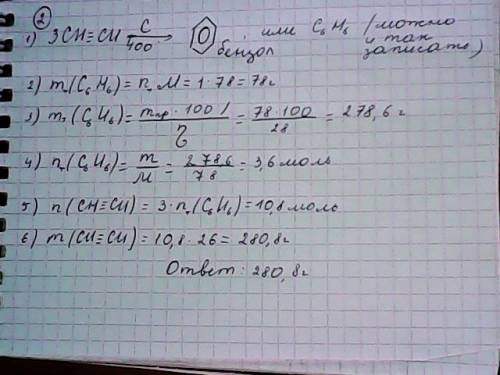 2
1) 3CH≡CH C/400° → бензол, или C₆H₆ (можно и так записать)
2) m(C₆H₆) = n·M = 1·78 = 78г
3) mт(C₆H₆) = mпр·100%/η = 78·100/28 = 278,6г
4) nт(C₆H₆) = m/M = 278,6/78 = 3,6 моль
5) n(CH≡CH) = 3·nт(C₆H₆) = 10,8 моль
6) m(CH≡CH) = 10,8·26 = 280,8г
Ответ: 280,8г